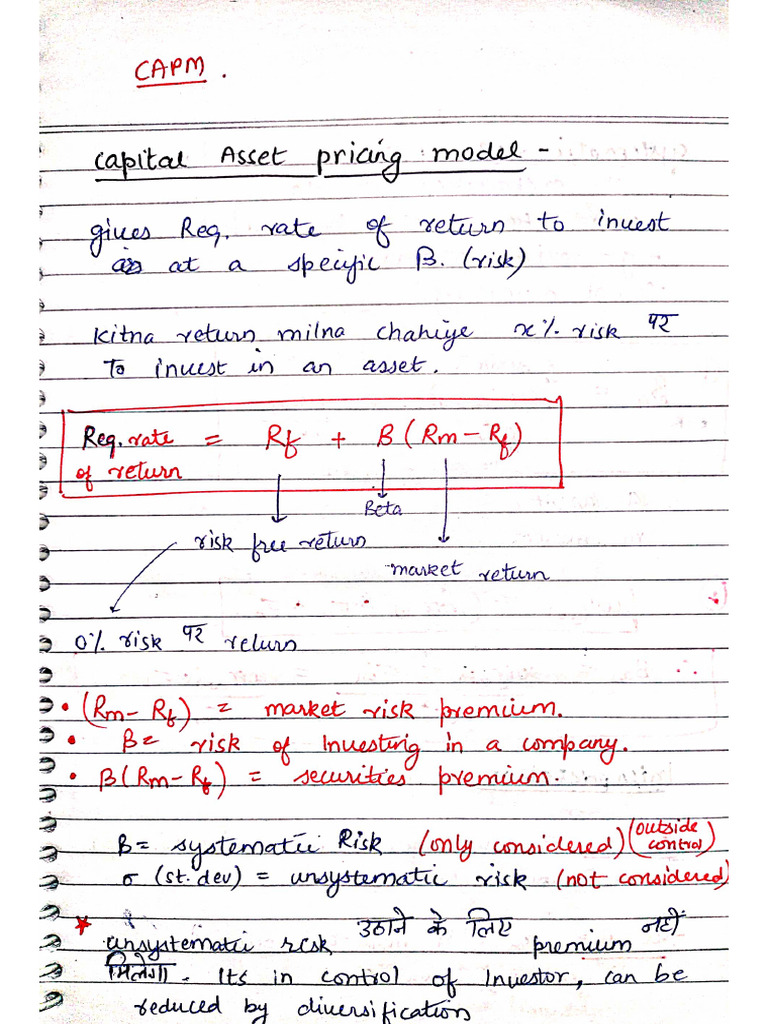 CAPM.
Capital Asset pricing model -
gives Req. rate of return to invest
at a specific β. (risk)
Kitna return milna chahiye x% risk पर
To invest in an asset.
Req. rate = Rf + β (Rm - Rf)
of return
Beta
risk free return
market return
0% risk पर return
• (Rm - Rf) = market risk premium.
• β = risk of Investing in a company.
• β (Rm - Rf) = securities premium.
β = systematic Risk (only considered) (outside control)
σ (st. dev) = unsystematic risk (not considered)
* unsystematic risk उठाने के लिए premium नहीं
मिलेगा. Its in control of Investor, can be
reduced by diversification